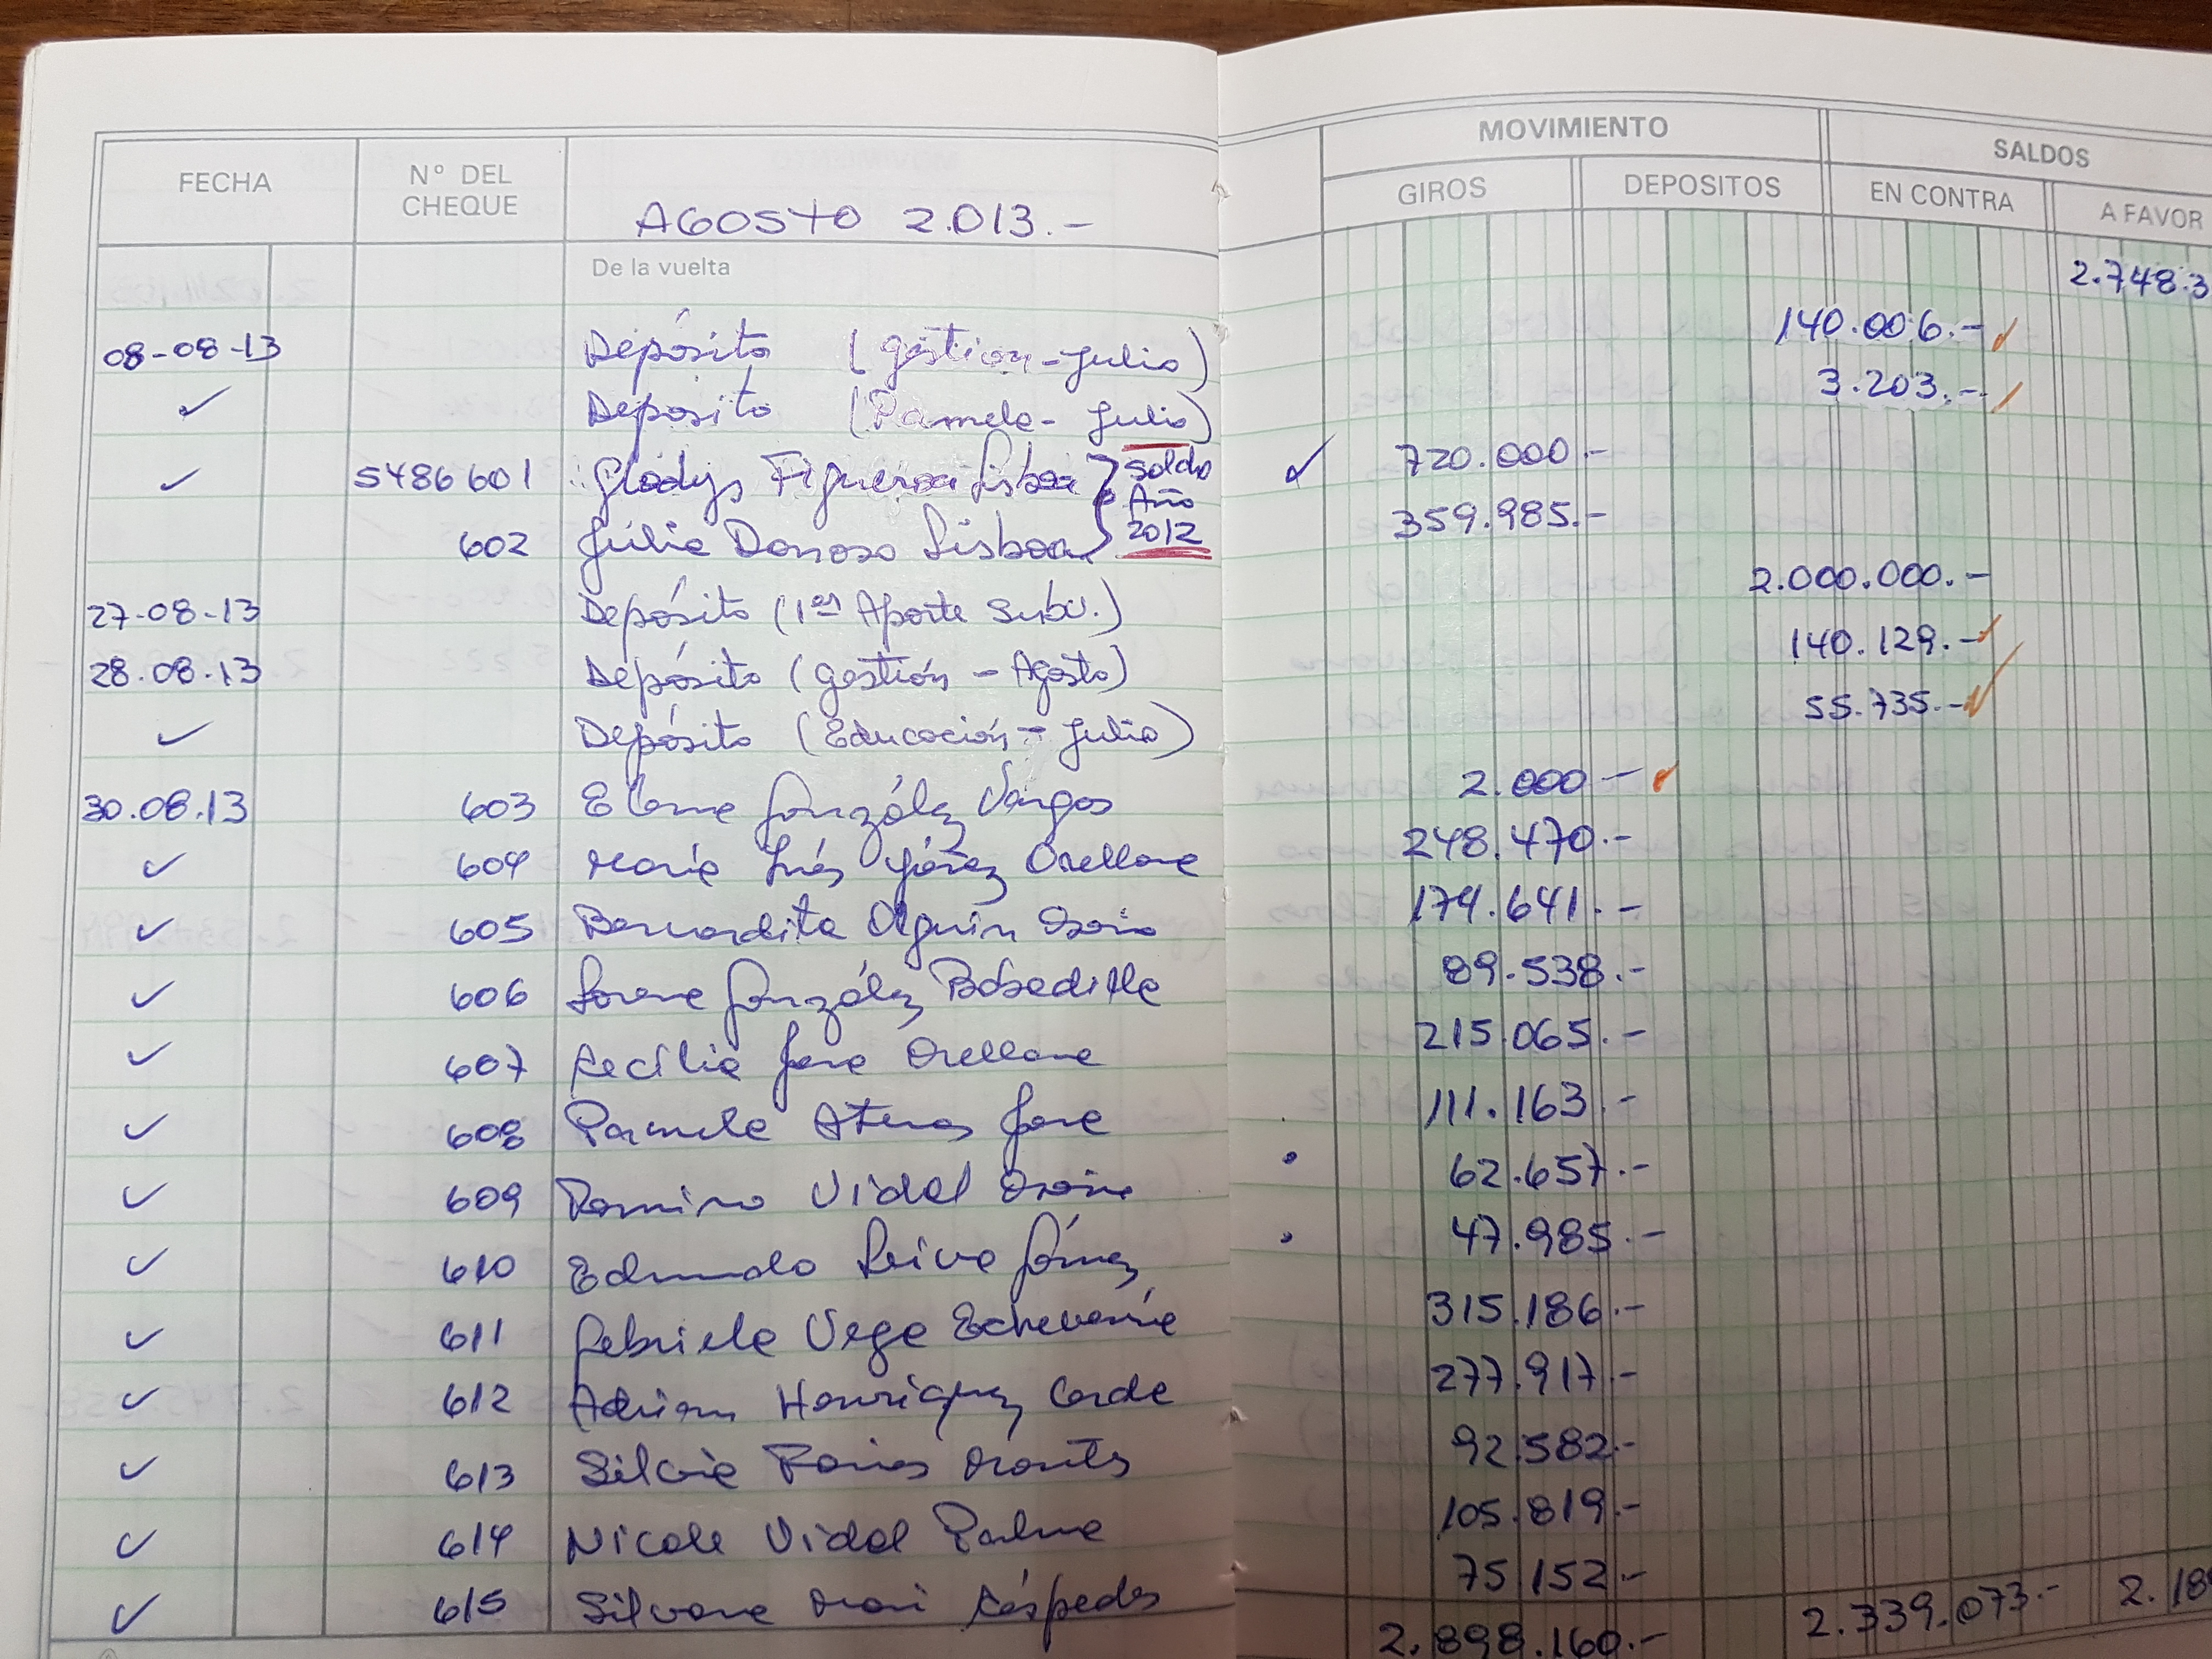 MOVIMIENTO SALDOS
FECHA Nº DEL CHEQUE GIROS DEPOSITOS EN CONTRA A FAVOR
AGOSTO 2.013.-
De la vuelta 2.748.3
08-08-13 Depósito (gestión-Julio) 140.006.-
✓ Depósito (Pamela-Julio) 3.203.-
✓ 5486601 Gladys Figueroa Lisboa } Saldo Año 2012 ✓ 720.000.-
602 Julia Donoso Lisboa 359.985.-
27-08-13 Depósito (1er Aporte Subv.) 2.000.000.-
28.08.13 Depósito (gestión - Agosto) 140.129.-
✓ Depósito (Educación - Julio) 55.735.-
30.08.13 603 González Vargas 2.000.-
✓ 604 María Inés Yáñez Orellana 248.470.-
✓ 605 Bernardita Olguín Osorio 174.641.-
✓ 606 Lorena González Bobadilla 89.538.-
✓ 607 Cecilia Jara Orellana 215.065.-
✓ 608 Pamela Atenas Jara 111.163.-
✓ 609 Vidal 62.657.-
✓ 610 Edmundo Leiva Gómez 47.985.-
✓ 611 Gabriela Vega Echeverría 315.186.-
✓ 612 Henríquez 277.917.-
✓ 613 Silvia 92.582.-
✓ 614 Nicole Vidal Palma 105.819.-
✓ 615 Silvana Céspedes 75.152.-
2.898.160.- 2.339.073.- 2.18